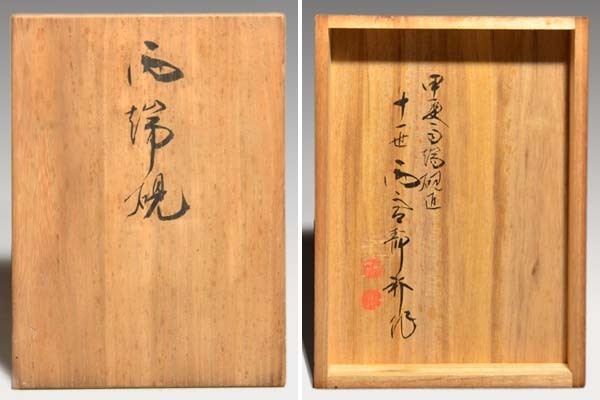 雨端硯
甲斐雨端硯匠
十一世 雨宮静軒作